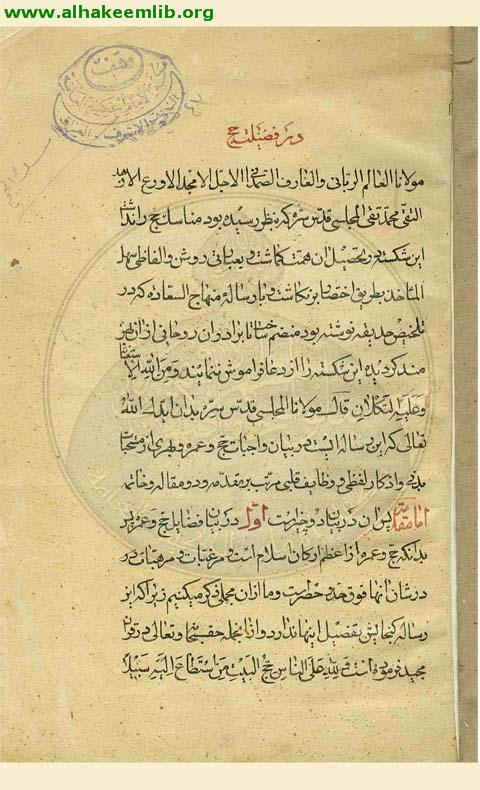 www.alhakeemlib.org
وقف
در فضیلت حج
مولانا العالم الربانی والعارف الصمدانی الاجل الامجد الاورع الازهد
التقی محمد تقی المجلسی قدس سره که بنظر رسیده بود مناسک حج را نداشت
این شکسته در تحصیل آن همت گماشت و بعباراتی روشن والفاظی سهل
المأخذ بطریق اختصار بر نگاشت و با رساله منهاج السعاده که در
تلخیص حدیقه نوشته بود منضم ساخت تا برادران روحانی از ان بهره
مند گردیده این شکسته را از دعا فراموش ننمایند ومن الله الاستعانة
وعلیه التکلان قال مولانا المجلسی قدس سره بدان ایدك الله
تعالی که این رساله ایست در بیان واجبات حج وعمره و بهری از مستحبات
بدنی و اذکار لفظی و وظایف قلبی مرتب بر مقدمه و دو مقاله و خاتمه
اما مقدمه پس آن در بیان دو چیز است اول در بیان فضایل حج وعمره پس
بدانکه حج وعمره از اعظم ارکان اسلام است و مرغبات و مرهبات در
در شان آنها فوق حد و حصر است و ما از ان مجملی ذکر میکنیم زیرا که این
رساله گنجایش تفصیل اینها ندارد و از انجمله حق سبحانه وتعالی در قرآن
مجید فرموده است ولله علی الناس حج البیت من استطاع الیه سبیلا